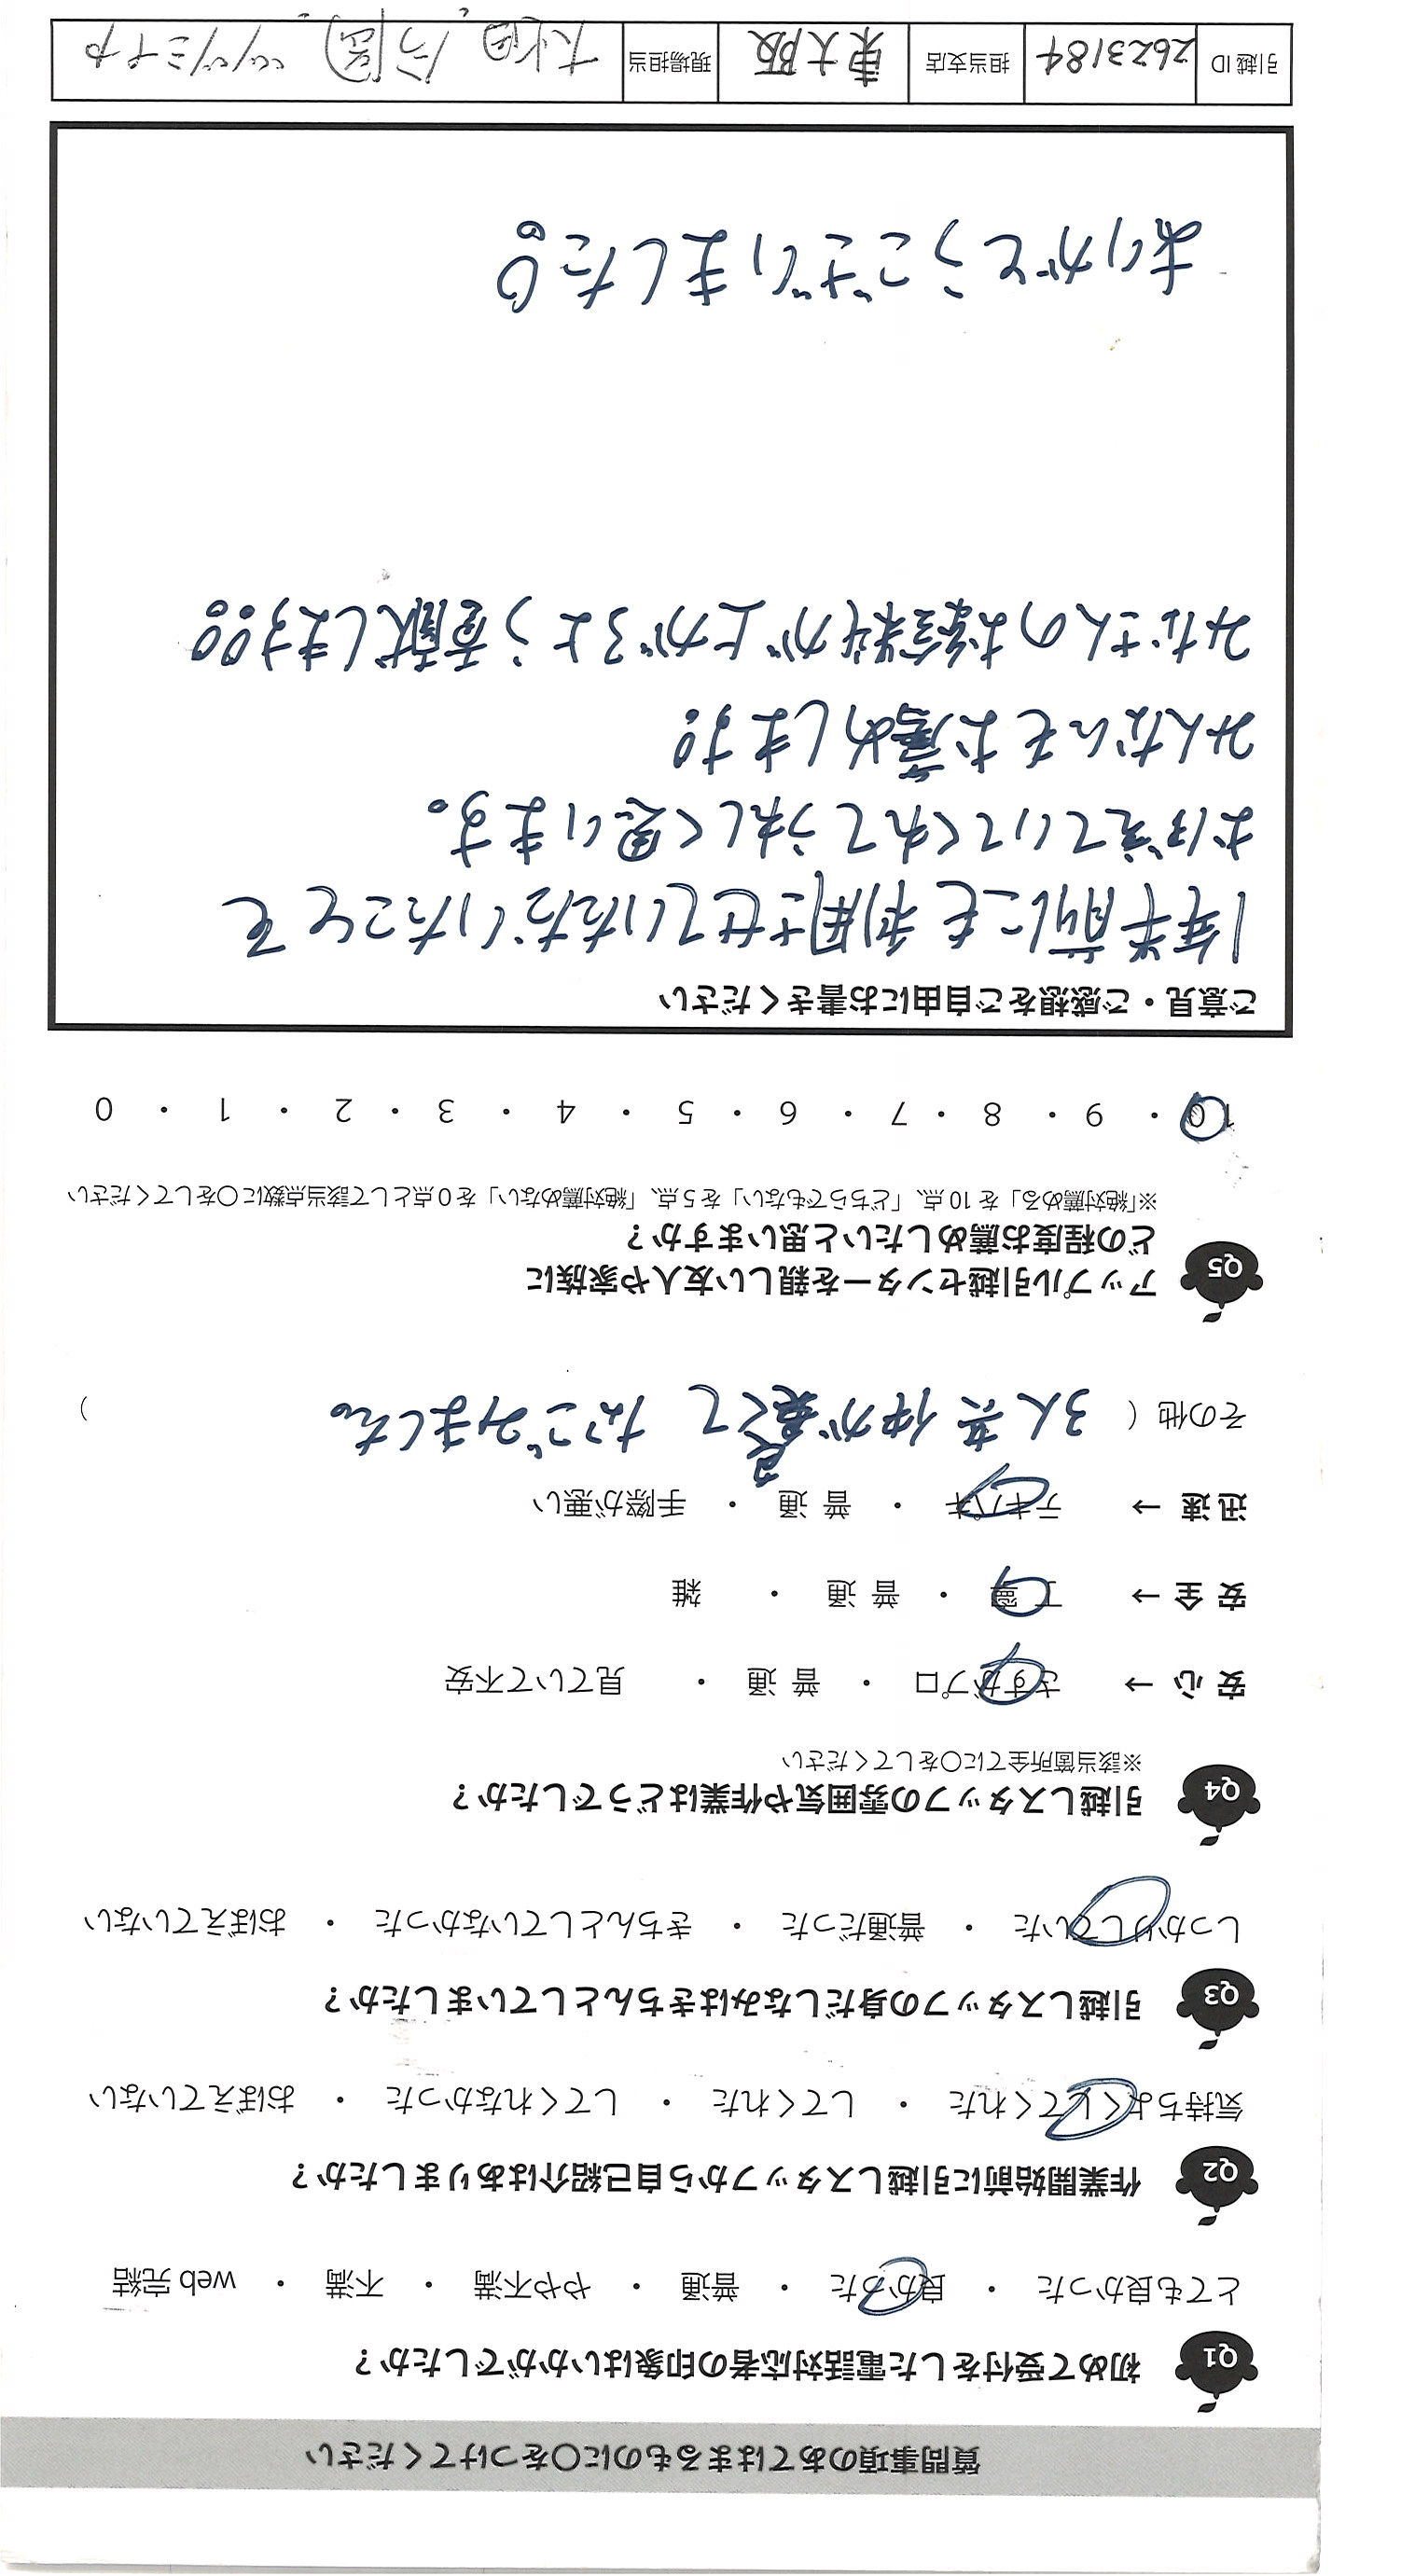 質問事項のあてはまるものに〇をつけてください
Q1 初めて受付をした電話対応者の印象はいかがでしたか？
とても良かった ・ 良かった ・ 普通 ・ やや不満 ・ 不満 ・ web 完結
Q2 作業開始前に引越しスタッフから自己紹介はありましたか？
気持ちよくしてくれた ・ してくれた ・ してくれなかった ・ おぼえていない
Q3 引越しスタッフの身だしなみはきちんとしていましたか？
しっかりしていた ・ 普通だった ・ きちんとしていなかった ・ おぼえていない
Q4 引越しスタッフの雰囲気や作業はどうでしたか？
※該当箇所全てに〇をしてください
安 心 → さすがプロ ・ 普 通 ・ 見ていて不安
安 全 → 丁 寧 ・ 普 通 ・ 雑
迅 速 → テキパキ ・ 普 通 ・ 手際が悪い
その他（ 3人共 仲が良くて なごみました。 ）
Q5 アップル引越センターを親しい友人や家族に
どの程度お薦めしたいと思いますか？
※「絶対薦める」を 10 点、「どちらでもない」を 5 点、「絶対薦めない」を 0 点として該当点数に〇をしてください
10 ・ 9 ・ 8 ・ 7 ・ 6 ・ 5 ・ 4 ・ 3 ・ 2 ・ 1 ・ 0
ご意見・ご感想をご自由にお書きください
1年半前にも利用させていただいたことを
おぼえていてくれてうれしく思います。
みんなにもお薦めします!
みなさんのお給料が上がるよう貢献します!!
ありがとうございました!!
引越 ID 2623184 担当支店 東大阪 現場担当